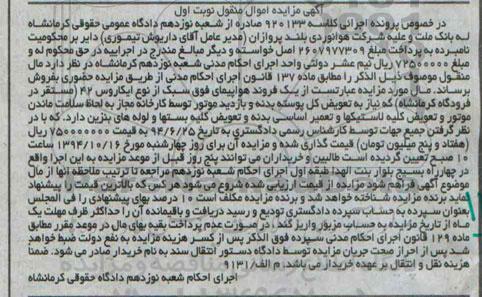 آگهی مزایده اموال منقول نوبت اول
در خصوص پرونده اجرائی کلاسه ۹۲۰۱۳۳ صادره از شعبه نوزدهم دادگاه عمومی حقوقی کرمانشاه
له بانک ملت و علیه شرکت هوانوردی بلند پروازان (مدیر عامل آقای داریوش تیموری) دایر بر محکومیت
نامبرده به پرداخت مبلغ ۲۶۰۷۹۷۷۳۰۹ اصل خواسته و دیگر مبالغ مندرج در اجراییه در حق محکوم له و
۷۲۵۰۰۰۰۰ ریال نیم عشر دولتی واحد اجرای احکام مدنی شعبه نوزدهم کرمانشاه در نظر دارد مال
منقول موصوف ذیل الذکر را مطابق ماده ۱۳۷ قانون اجرای احکام مدنی از طریق مزایده حضوری بفروش
برساند. مال مورد مزایده عبارتست از یک فروند هواپیمای فوق سبک از نوع ایکاروس ۴۲ (مستقر در
فرودگاه کرمانشاه) که نیاز به تعویض کل پوسته بدنه و بازدید موتور توسط کارخانه مجاز به لحاظ سلامت ماندن
موتور و تعویض کلیه لاستیکها و تعمیر اساسی بدنه و تعویض کلیه بستها و لوله های بنزین دارد. که با در
نظر گرفتن جمیع جهات توسط کارشناس رسمی دادگستری به تاریخ ۹۴/۶/۲۵ به قیمت ۷۵۰۰۰۰۰۰۰ ریال
(هفتاد و پنج میلیون تومان) قیمت گذاری شده و مزایده آن برای روز چهارشنبه مورخ ۱۳۹۴/۱۰/۱۶ ساعت
۱۰ صبح تعیین گردیده است طالبین و خریداران می توانند پنج روز قبل از موعد مزایده به این اجرا واقع
در چهارراه بسیج بلوار بنت الهدا طبقه اول اجرای احکام شعبه نوزدهم مراجعه تا ترتیب ملاحظه آنها از مال
موضوع آگهی فراهم شود مزایده از قیمت ارزیابی شده شروع می شود هر کس که بالاترین قیمت را پیشنهاد
نماید برنده مزایده شناخته خواهد شد و برنده مزایده مکلف است ۱۰ درصد بهای پیشنهادی را فی المجلس
بعنوان سپرده به حساب سپرده دادگستری تودیع و رسید دریافت و باقیمانده آن را حداکثر ظرف مهلت یک
ماه از تاریخ مزایده به حساب مزبور واریز کند. در صورت عدم پرداخت بقیه بهای مال در موعد مقرر مطابق
ماده ۱۲۹ قانون اجرای احکام مدنی سپرده فوق الذکر پس از کسر هزینه مزایده به نفع دولت ضبط خواهد
شد پس از احراز صحت جریان مزایده توسط دادگاه دستور انتقال سند به نام خریدار صادر می شود. ضمنا
هزینه نقل و انتقال بر عهده خریدار می باشد. م الف/۹۱۳۱
اجرای احکام شعبه نوزدهم دادگاه حقوقی کرمانشاه